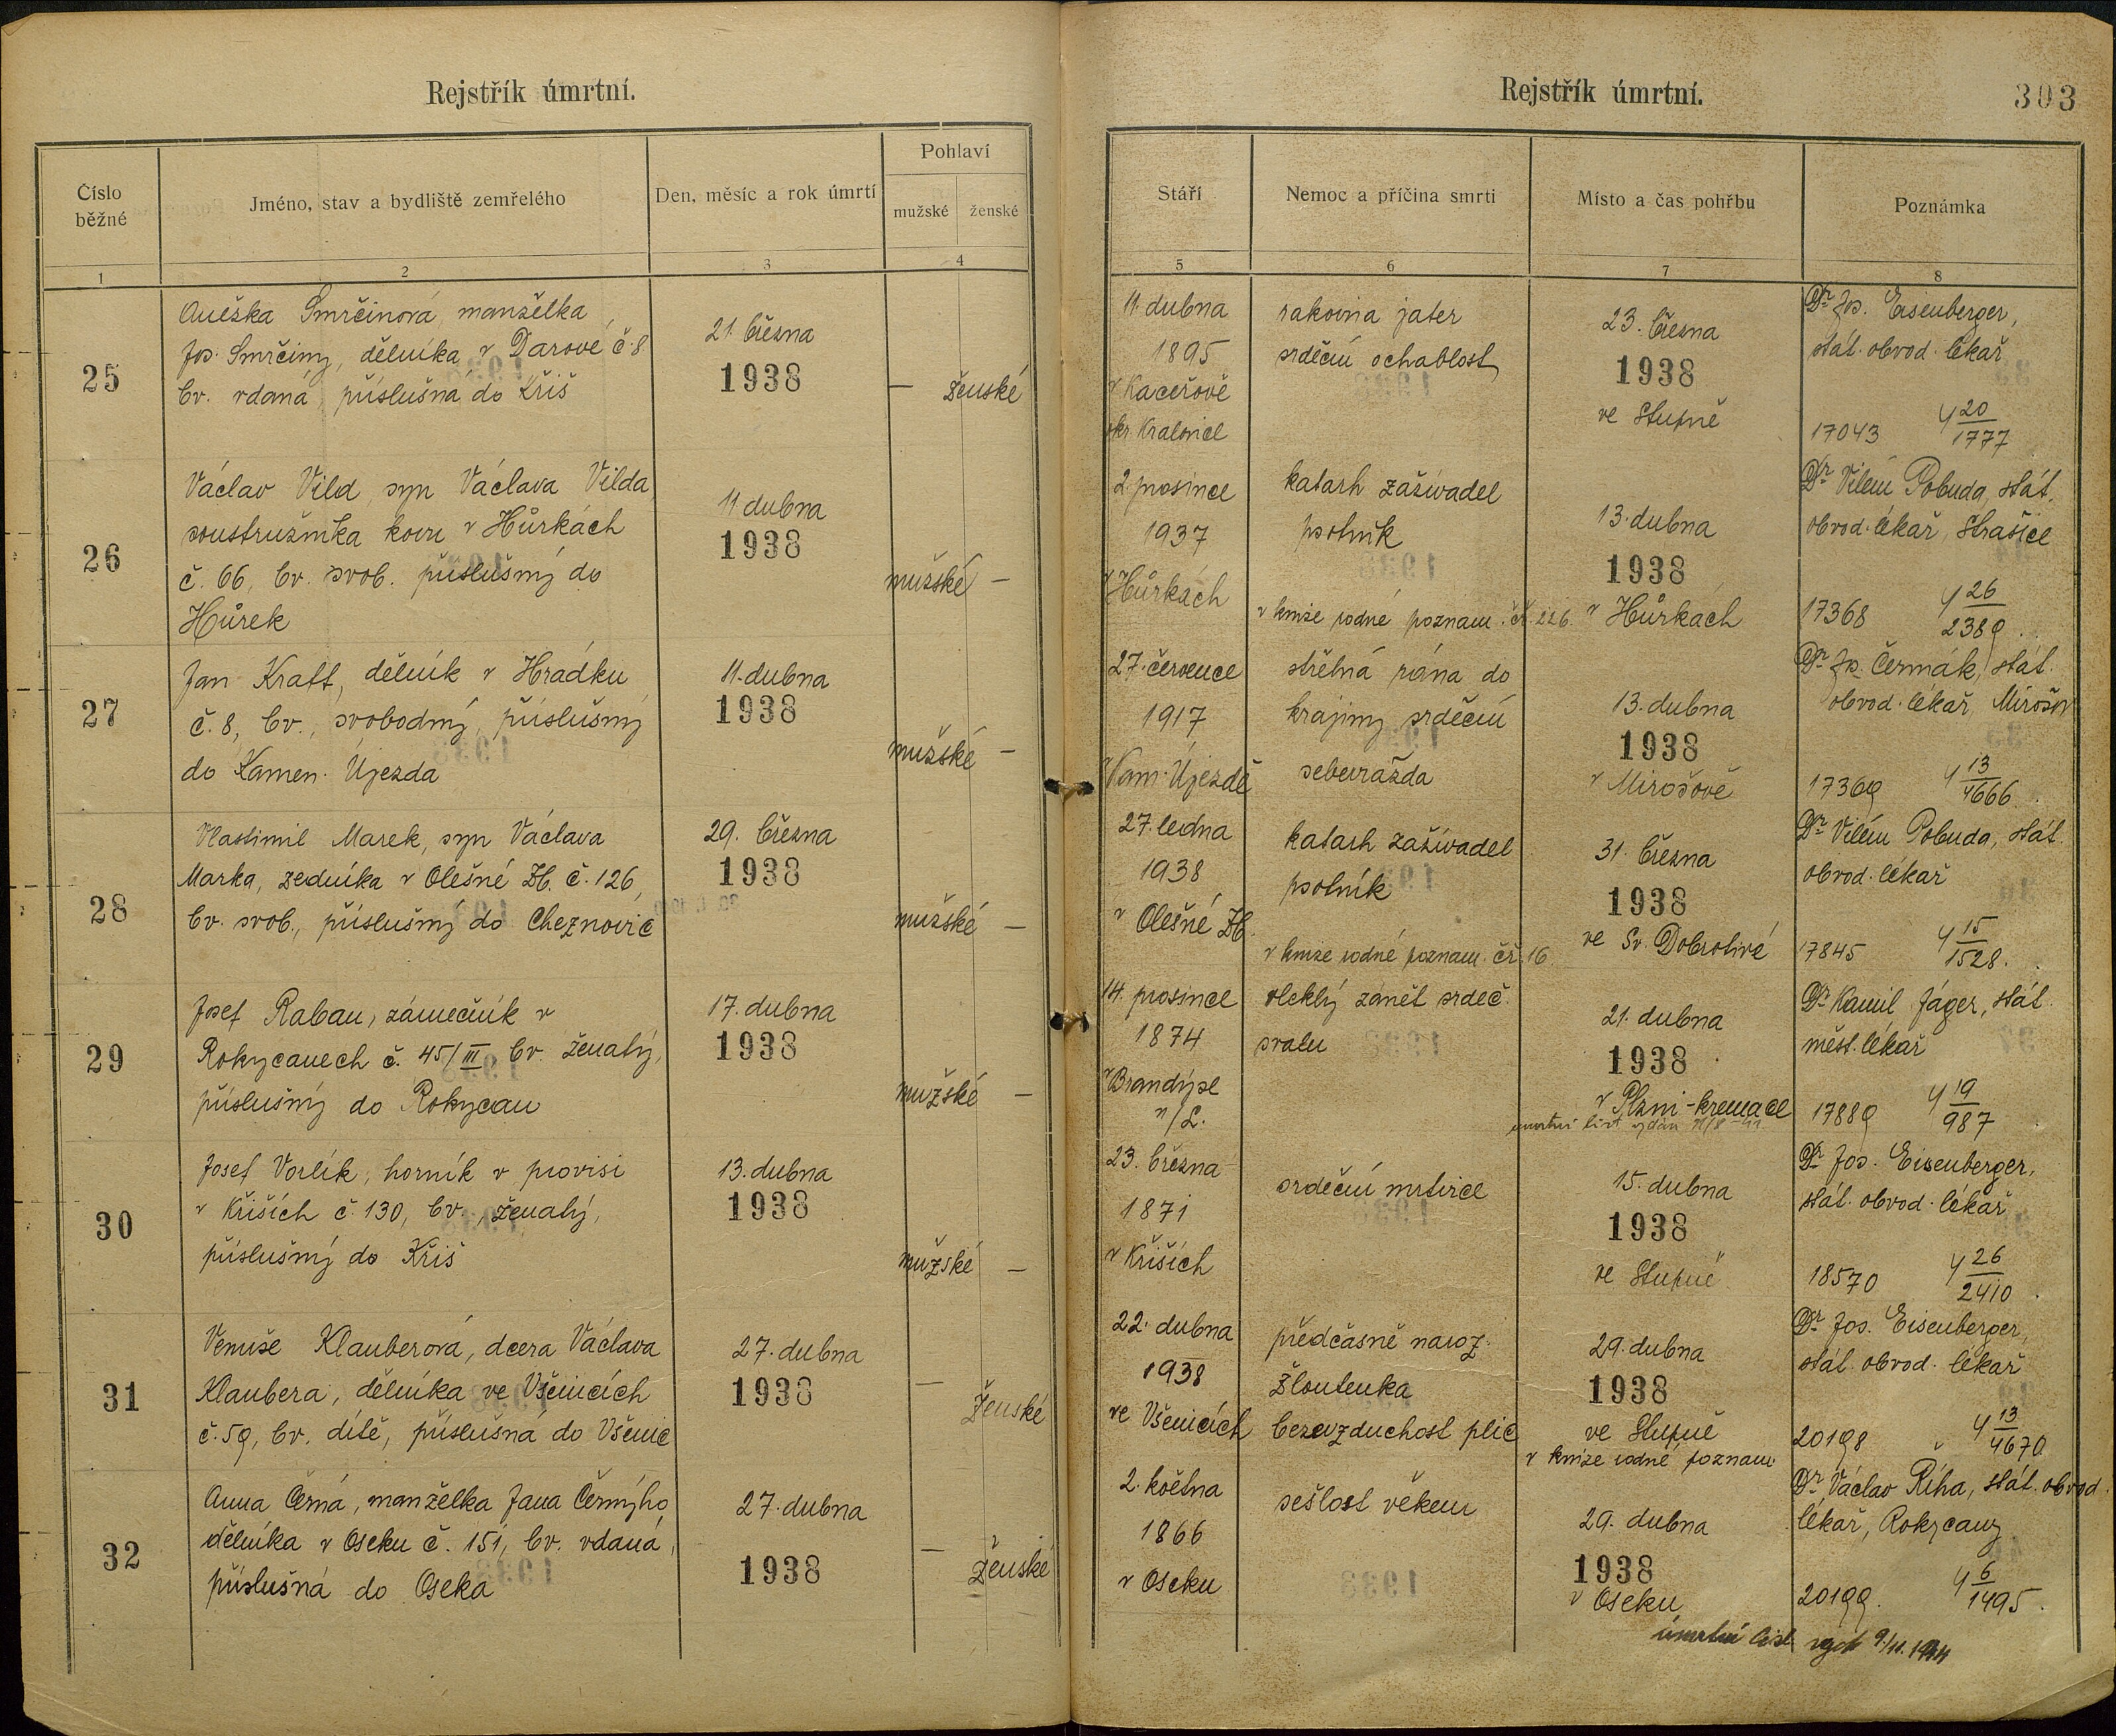 Rejstřík úmrtní.
Číslo běžné
Jméno, stav a bydliště zemřelého
Den, měsíc a rok úmrtí
Pohlaví
mužské
ženské
1
2
3
4
25
Anežka Smrčinová, manželka
Jos. Smrčiny, dělníka v Darové č. 8
bv. vdaná příslušná do Kříš
21. března
1938
—
ženské
26
Václav Vild, syn Václava Vilda
soustružníka kovu v Hůrkách
č. 66, bv. svob. příslušný do
Hůrek
11 dubna
1938
mužské
—
27
Jan Kraft, dělník v Hrádku
č. 8, bv., svobodný, příslušný
do Kamen. Újezda
11. dubna
1938
mužské
—
28
Vlastimil Marek, syn Václava
Marka, zedníka v Olešné Zb. č. 126,
bv. svob., příslušný do Cheznovic
29. března
1938
mužské
—
29
Josef Raban, zámečník v
Rokycanech č. 45/III bv. ženatý,
příslušný do Rokycan
17. dubna
1938
mužské
—
30
Josef Vorlík, horník v provisi
v Křiších č. 130, bv., ženatý,
příslušný do Kříš
13. dubna
1938
mužské
—
31
Venuše Klauberová, dcera Václava
Klaubera, dělníka ve Všenicích
č. 59, bv. dítě, příslušná do Všenic
27. dubna
1938
—
ženské
32
Anna Černá, manželka Jana Černýho,
dělníka v Oseku č. 151, bv. vdaná,
příslušná do Oseka
27. dubna
1938
—
ženské
Rejstřík úmrtní.
303
Stáří
Nemoc a příčina smrti
Místo a čas pohřbu
Poznámka
5
6
7
8
11. dubna
1895
v Kaceřově
okr. Kralovice
rakovina jater
srdeční ochablost
23. března
1938
ve Stupně
Dr Jos. Eisenberger,
stát. obvod. lékař
17043
4 20/1777
2. prosince
1937
v Hůrkách
katarh zažívadel
psotník
v knize rodné poznam. čř. 226
13. dubna
1938
v Hůrkách
Dr Vilém Pobuda, stát.
obvod. lékař, Strašice
17368
4 26/2389.
27. července
1917
v Kam. Újezdě
střelná rána do
krajiny srdeční
sebevražda
13. dubna
1938
v Mirošově
Dr Jos. Čermák, stát.
obvod. lékař, Mirošov
17369
4 13/4666.
27. ledna
1938
v Olešné Zb.
katarh zažívadel
psotník
v knize rodné poznam. čř. 16.
31. března
1938
ve Sv. Dobrotivé
Dr Vilém Pobuda, stát.
obvod. lékař
17845
4 15/1528.
14. prosince
1874
v Brandýse
n/L.
vleklý zánět srdeč.
svalu
21. dubna
1938
v Plzni - kremace
úmrtní list vydán
Dr Kamil Jäger, stát.
měst. lékař
17889
4 19/987
23. března
1871
v Křiších
srdeční mrtvice
15. dubna
1938
ve Stupně
Dr Jos. Eisenberger,
stát. obvod. lékař
18570
4 26/2410.
22. dubna
1938
ve Všenicích
předčasně naroz.
žloutenka
bezvzduchost plic
29. dubna
1938
ve Stupně
v knize rodné poznam.
Dr Jos. Eisenberger,
stát. obvod. lékař
20198
4 13/4670
2. května
1866
v Oseku
sešlost věkem
29. dubna
1938
v Oseku
Dr Václav Říha, stát. obvod.
lékař, Rokycany
20199.
4 6/1495.
úmrtní list vyd. 9/11. 1944